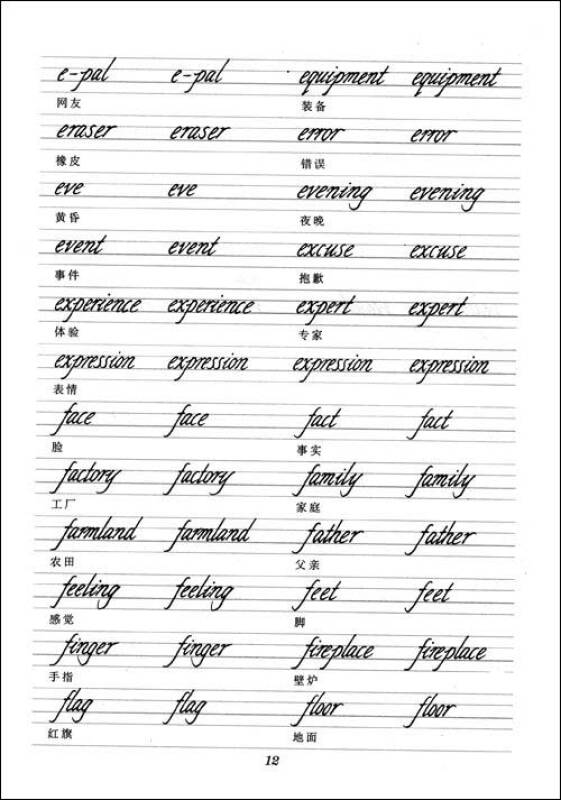 e-pal e-pal equipment equipment
网友 装备
eraser eraser error error
橡皮 错误
eve eve evening evening
黄昏 夜晚
event event excuse excuse
事件 抱歉
experience experience expert expert
体验 专家
expression expression expression expression
表情
face face fact fact
脸 事实
factory factory family family
工厂 家庭
farmland farmland father father
农田 父亲
feeling feeling feet feet
感觉 脚
finger finger fireplace fireplace
手指 壁炉
flag flag floor floor
红旗 地面
12